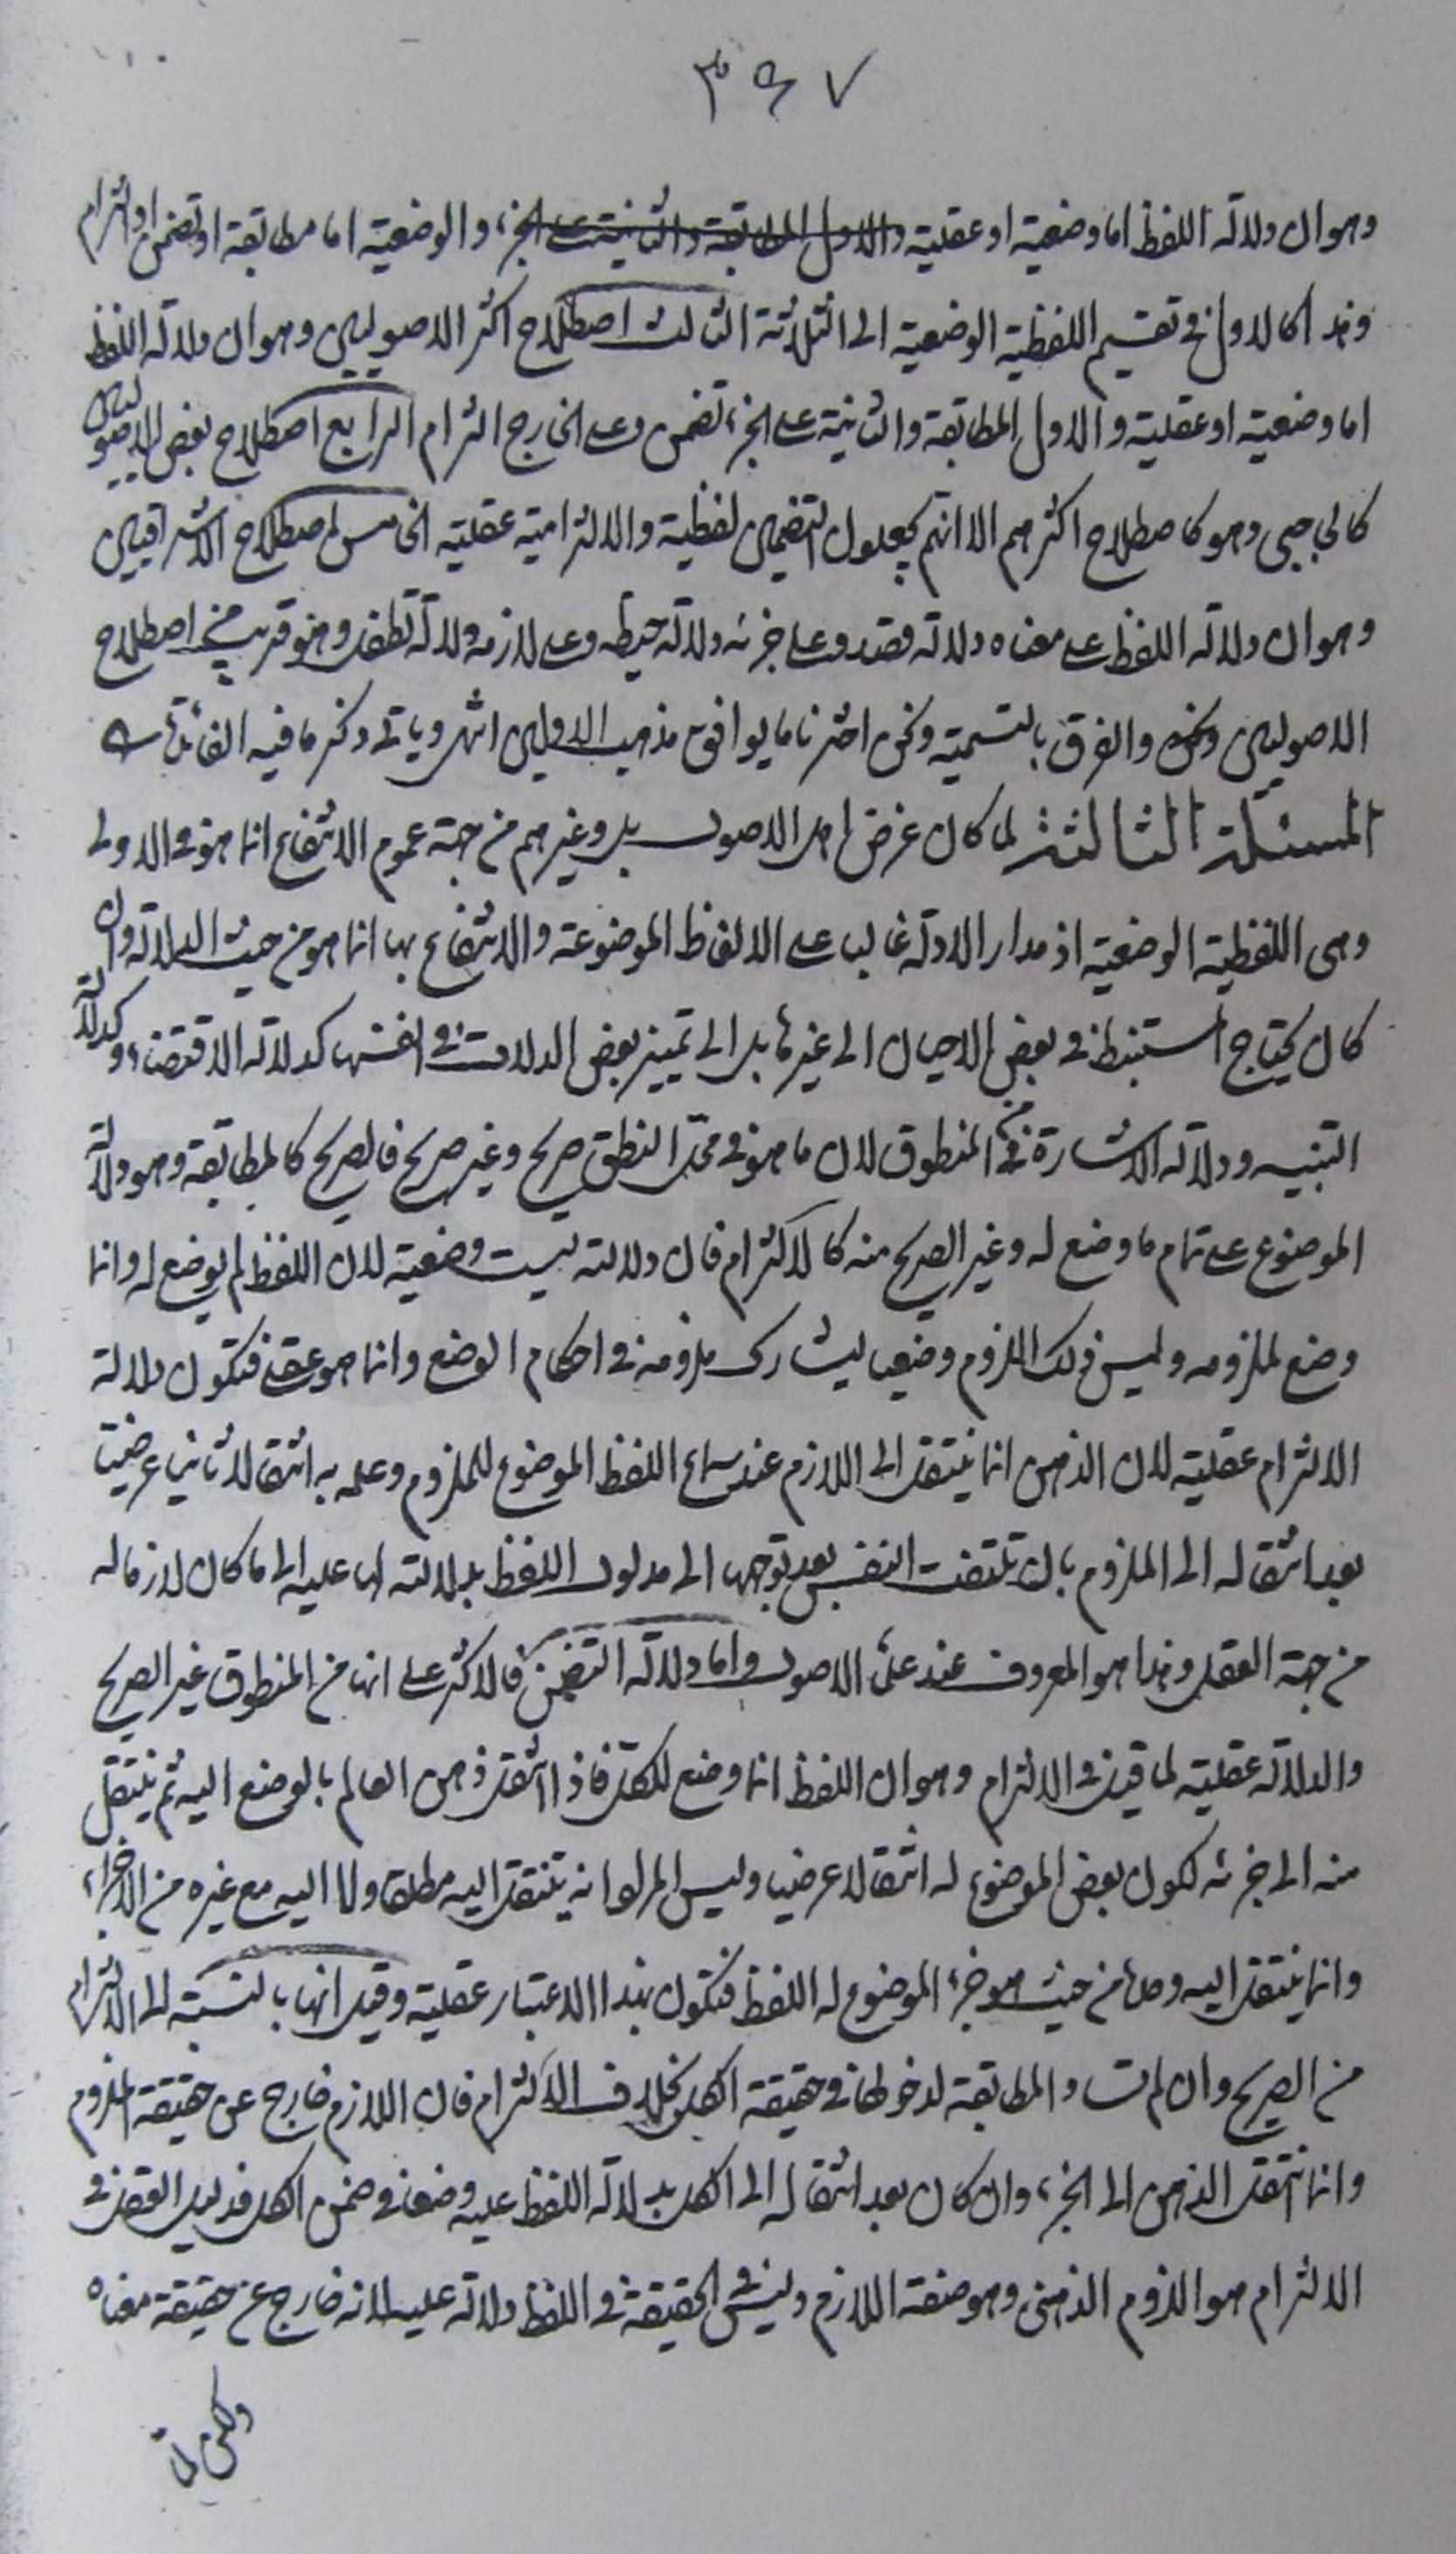 ٣٩٧
وهو ان دلالة اللفظ اما وضعية او عقلية والاول المطابقة والثانية على الجزء والوضعية اما مطابقة او تضمن او التزام
وهذا كالاول في تقسيم اللفظية الوضعية الى الثلاثة الثالث اصطلاح اكثر الاصوليين وهو ان دلالة اللفظ
اما وضعية او عقلية والاول المطابقة والثانية على الجزء تضمن وعلى الخارج التزام الرابع اصطلاح بعض الاصوليين
كالحاجبي وهو كاصطلاح اكثرهم الا انهم يجعلون التضمن لفظية والالتزامية عقلية الخامس اصطلاح الاشراقيين
وهو ان دلالة اللفظ على معناه دلالة قصد وعلى جزئه دلالة حيطه وعلى لازمه دلالة تطفل وهو قريب من اصطلاح
الاصوليين والفرق بالتسمية ونحن اخترنا ما يوافق مذهب الاولين اشهر ويأتي ذكر ما فيه الفائدة
المسئلة الثالثة لما كان غرض اهل الاصول بل وغيرهم من جهة عموم الانتفاع انما هو في الاولى
وهي اللفظية الوضعية اذ مدار الادلة غالبا على الالفاظ الموضوعة والانتفاع بها انما هو من حيث الدلالة وان
كان يحتاج المستنبط في بعض الاحيان الى غيرها بل الى تمييز بعض الدلالات في انفسها كدلالة الاقتضاء وكدلالة
التنبيه ودلالة الاشارة من المنطوق لان ما هو في محل النطق صريح وغير صريح فالصريح كالمطابقة وهو دلالة
الموضوع على تمام ما وضع له وغير الصريح منه كالالتزام فان دلالته ليست وضعية لان اللفظ لم يوضع له وانما
وضع لملزومه وليس ذلك اللزوم وضعيا ليشارك ملزومه في احكام الوضع وانما هو عقلي فتكون دلالة
الالتزام عقلية لان الذهن انما ينتقل الى اللازم عند سماع اللفظ الموضوع للملزوم وعلمه به انتقالا ثانيا عرضيا
بعد انتقاله الى الملزوم بان تلتفت النفس بعد توجهها الى مدلول اللفظ بدلالته لها عليه الى ما كان لازما له
من جهة العقل وهذا هو المعروف عند علماء الاصول واما دلالة التضمن فالاكثر على انها من المنطوق غير الصريح
والدلالة عقلية لما قيل في الالتزام وهو ان اللفظ انما وضع للكل فاذا انتقل ذهن العالم بالوضع اليه ثم ينتقل
منه الى جزئه لكون بعض الموضوع له انتقالا عرضيا وليس المراد انه ينتقل اليه مطلقا ولا اليه مع غيره من الاجزاء
وانما ينتقل اليه وحده من حيث هو جزء الموضوع له اللفظ فتكون بهذا الاعتبار عقلية وقيل انها بالنسبة الى الالتزام
من الصريح وان لم تساو المطابقة لدخولها في حقيقة الكل بخلاف الالتزام فان اللازم خارج عن حقيقة الملزوم
وانما انتقل الذهن الى الجزء وان كان بعد انتقاله الى الكل بدلالة اللفظ عليه وضعا في ضمن الكل فدليل العقل في
الالتزام هو اللزوم الذهني وهو صفة اللازم وليس في الحقيقة في اللفظ دلالة عليه لانه خارج عن حقيقة معناه
ولكن لما